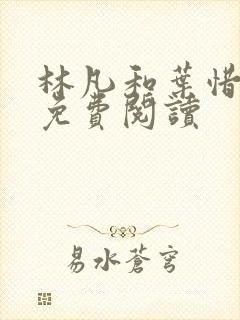 林凡和葉惜
免費閱讀
易水蒼穹